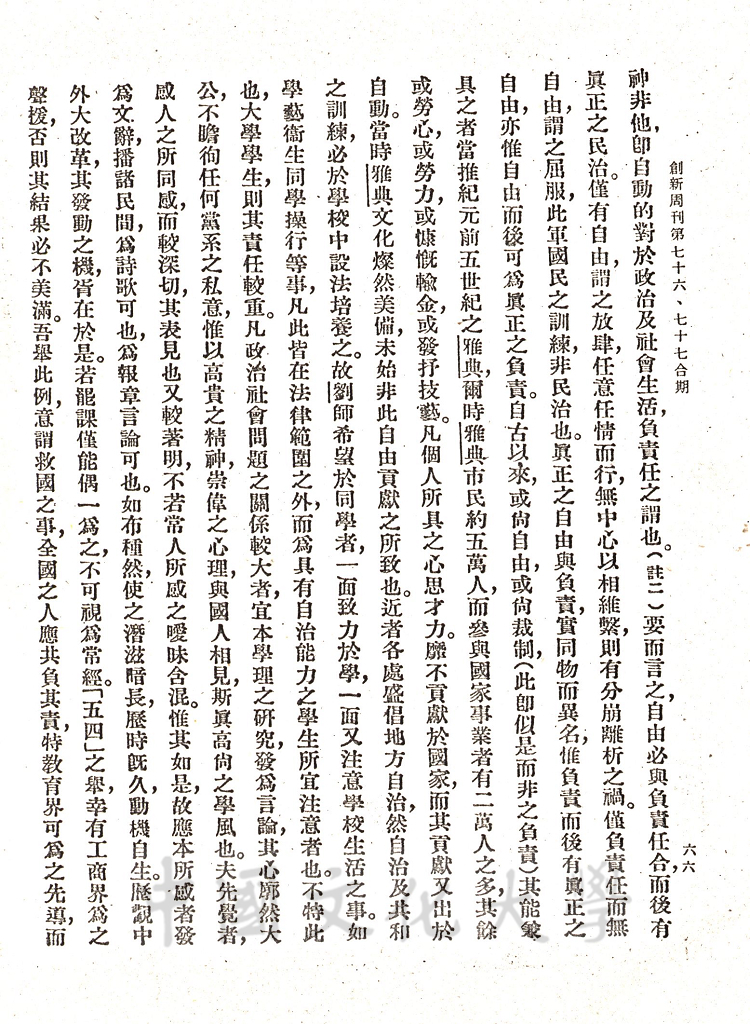 創新周刊第七十六、七十七合期
六六
神非他,卽自動的對於政治及社會生活,負責任之謂也。(註二)要而言之,自由必與負責任合,而後有
眞正之民治。僅有自由,謂之放肆,任意任情而行,無中心以相維繫,則有分崩離析之禍。僅負責任而無
自由,謂之屈服,此軍國民之訓練,非民治也。眞正之自由與負責,實同物而異名,惟負責而後有眞正之
自由,亦惟自由而後可爲眞正之負責。自古以來,或尙自由,或尙裁制,(此卽似是而非之負責)其能兼
具之者,當推紀元前五世紀之雅典,爾時雅典市民約五萬人,而參與國家事業者有二萬人之多,其餘
或勞心,或勞力,或慷慨輸金,或發抒技藝。凡個人所具之心思才力。靡不貢獻於國家,而其貢獻又出於
自動。當時雅典文化燦然美備,未始非此自由貢獻之所致也。近者各處盛倡地方自治,然自治及共和
之訓練,必於學校中設法培養之。故劉師希望於同學者,一面致力於學,一面又注意學校生活之事。如
學藝衞生同學操行等事,凡此皆在法律範圍之外,而爲具有自治能力之學生所宜注意者也。不特此
也,大學學生,則其責任較重。凡政治社會問題之關係較大者,宜本學理之硏究,發爲言論,其心廓然大
公,不瞻徇任何黨系之私意,惟以高貴之精神,崇偉之心理,與國人相見,斯眞高尙之學風也。夫先覺者,
感人之所同感,而較深切,其表見也又較著明,不若常人所感之曖昧含混。惟其如是,故應本所感者發
爲文辭,播諸民間,爲詩歌可也,爲報章言論可也。如布種然,使之潛滋暗長,歷時旣久,動機自生。歷觀中
外大改革,其發動之機,胥在於是。若罷課僅能偶一爲之,不可視爲常經。「五四」之舉,幸有工商界爲之
聲援,否則其結果必不美滿。吾舉此例,意謂救國之事,全國之人應共負其責,特敎育界可爲之先導,而
中國文化大學